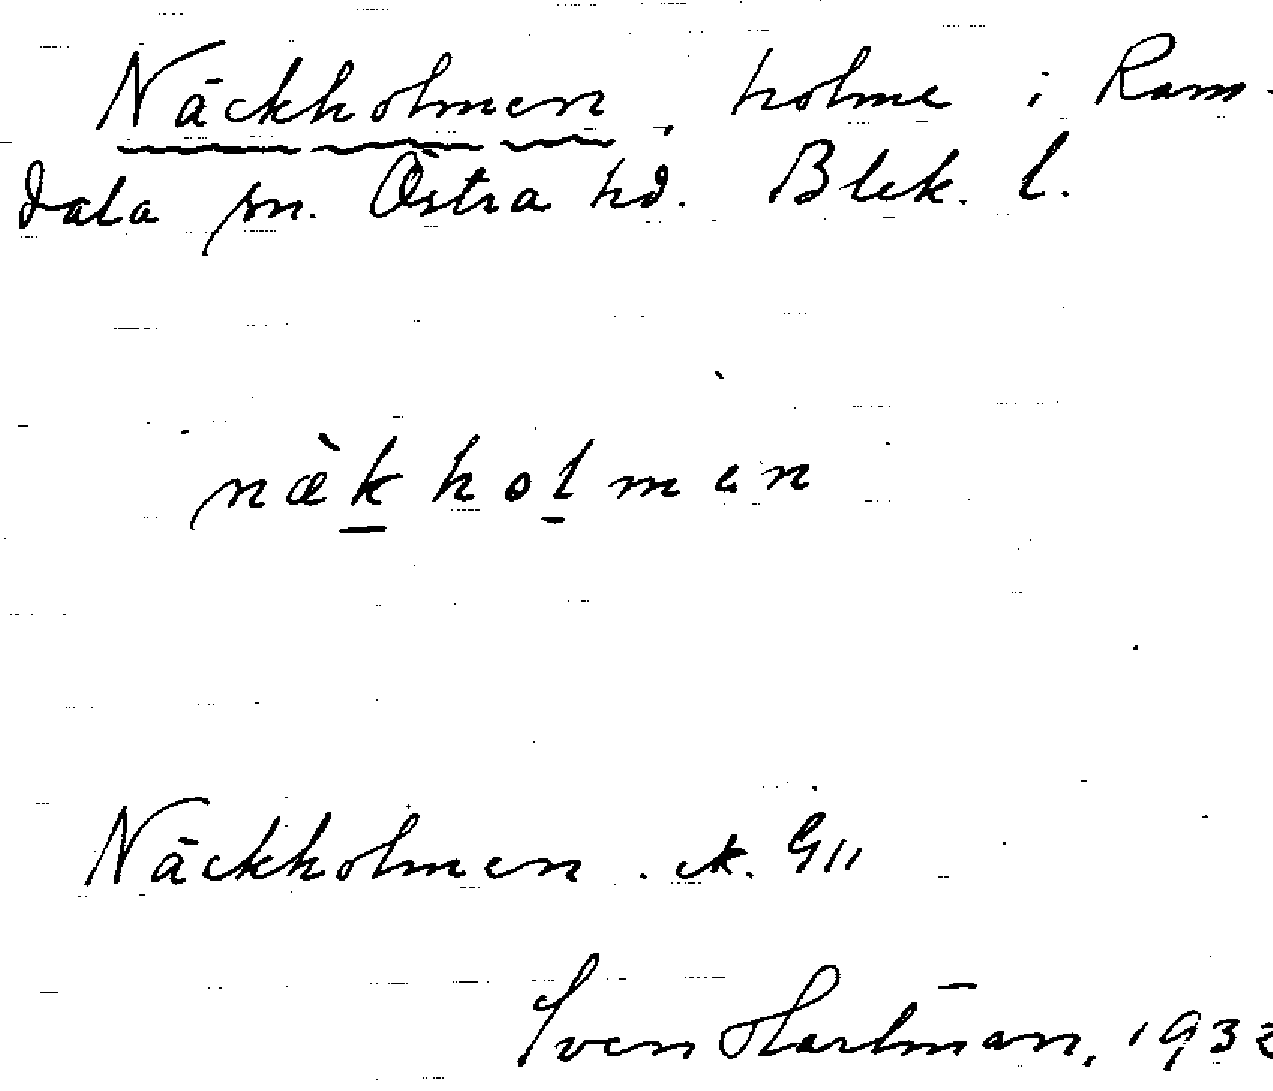 Näckholmen, holme i Ram-
dala sn. Östra hd. Blek. l.
nækholmen
Näckholmen. ek. G11
Sven Hartman, 1932